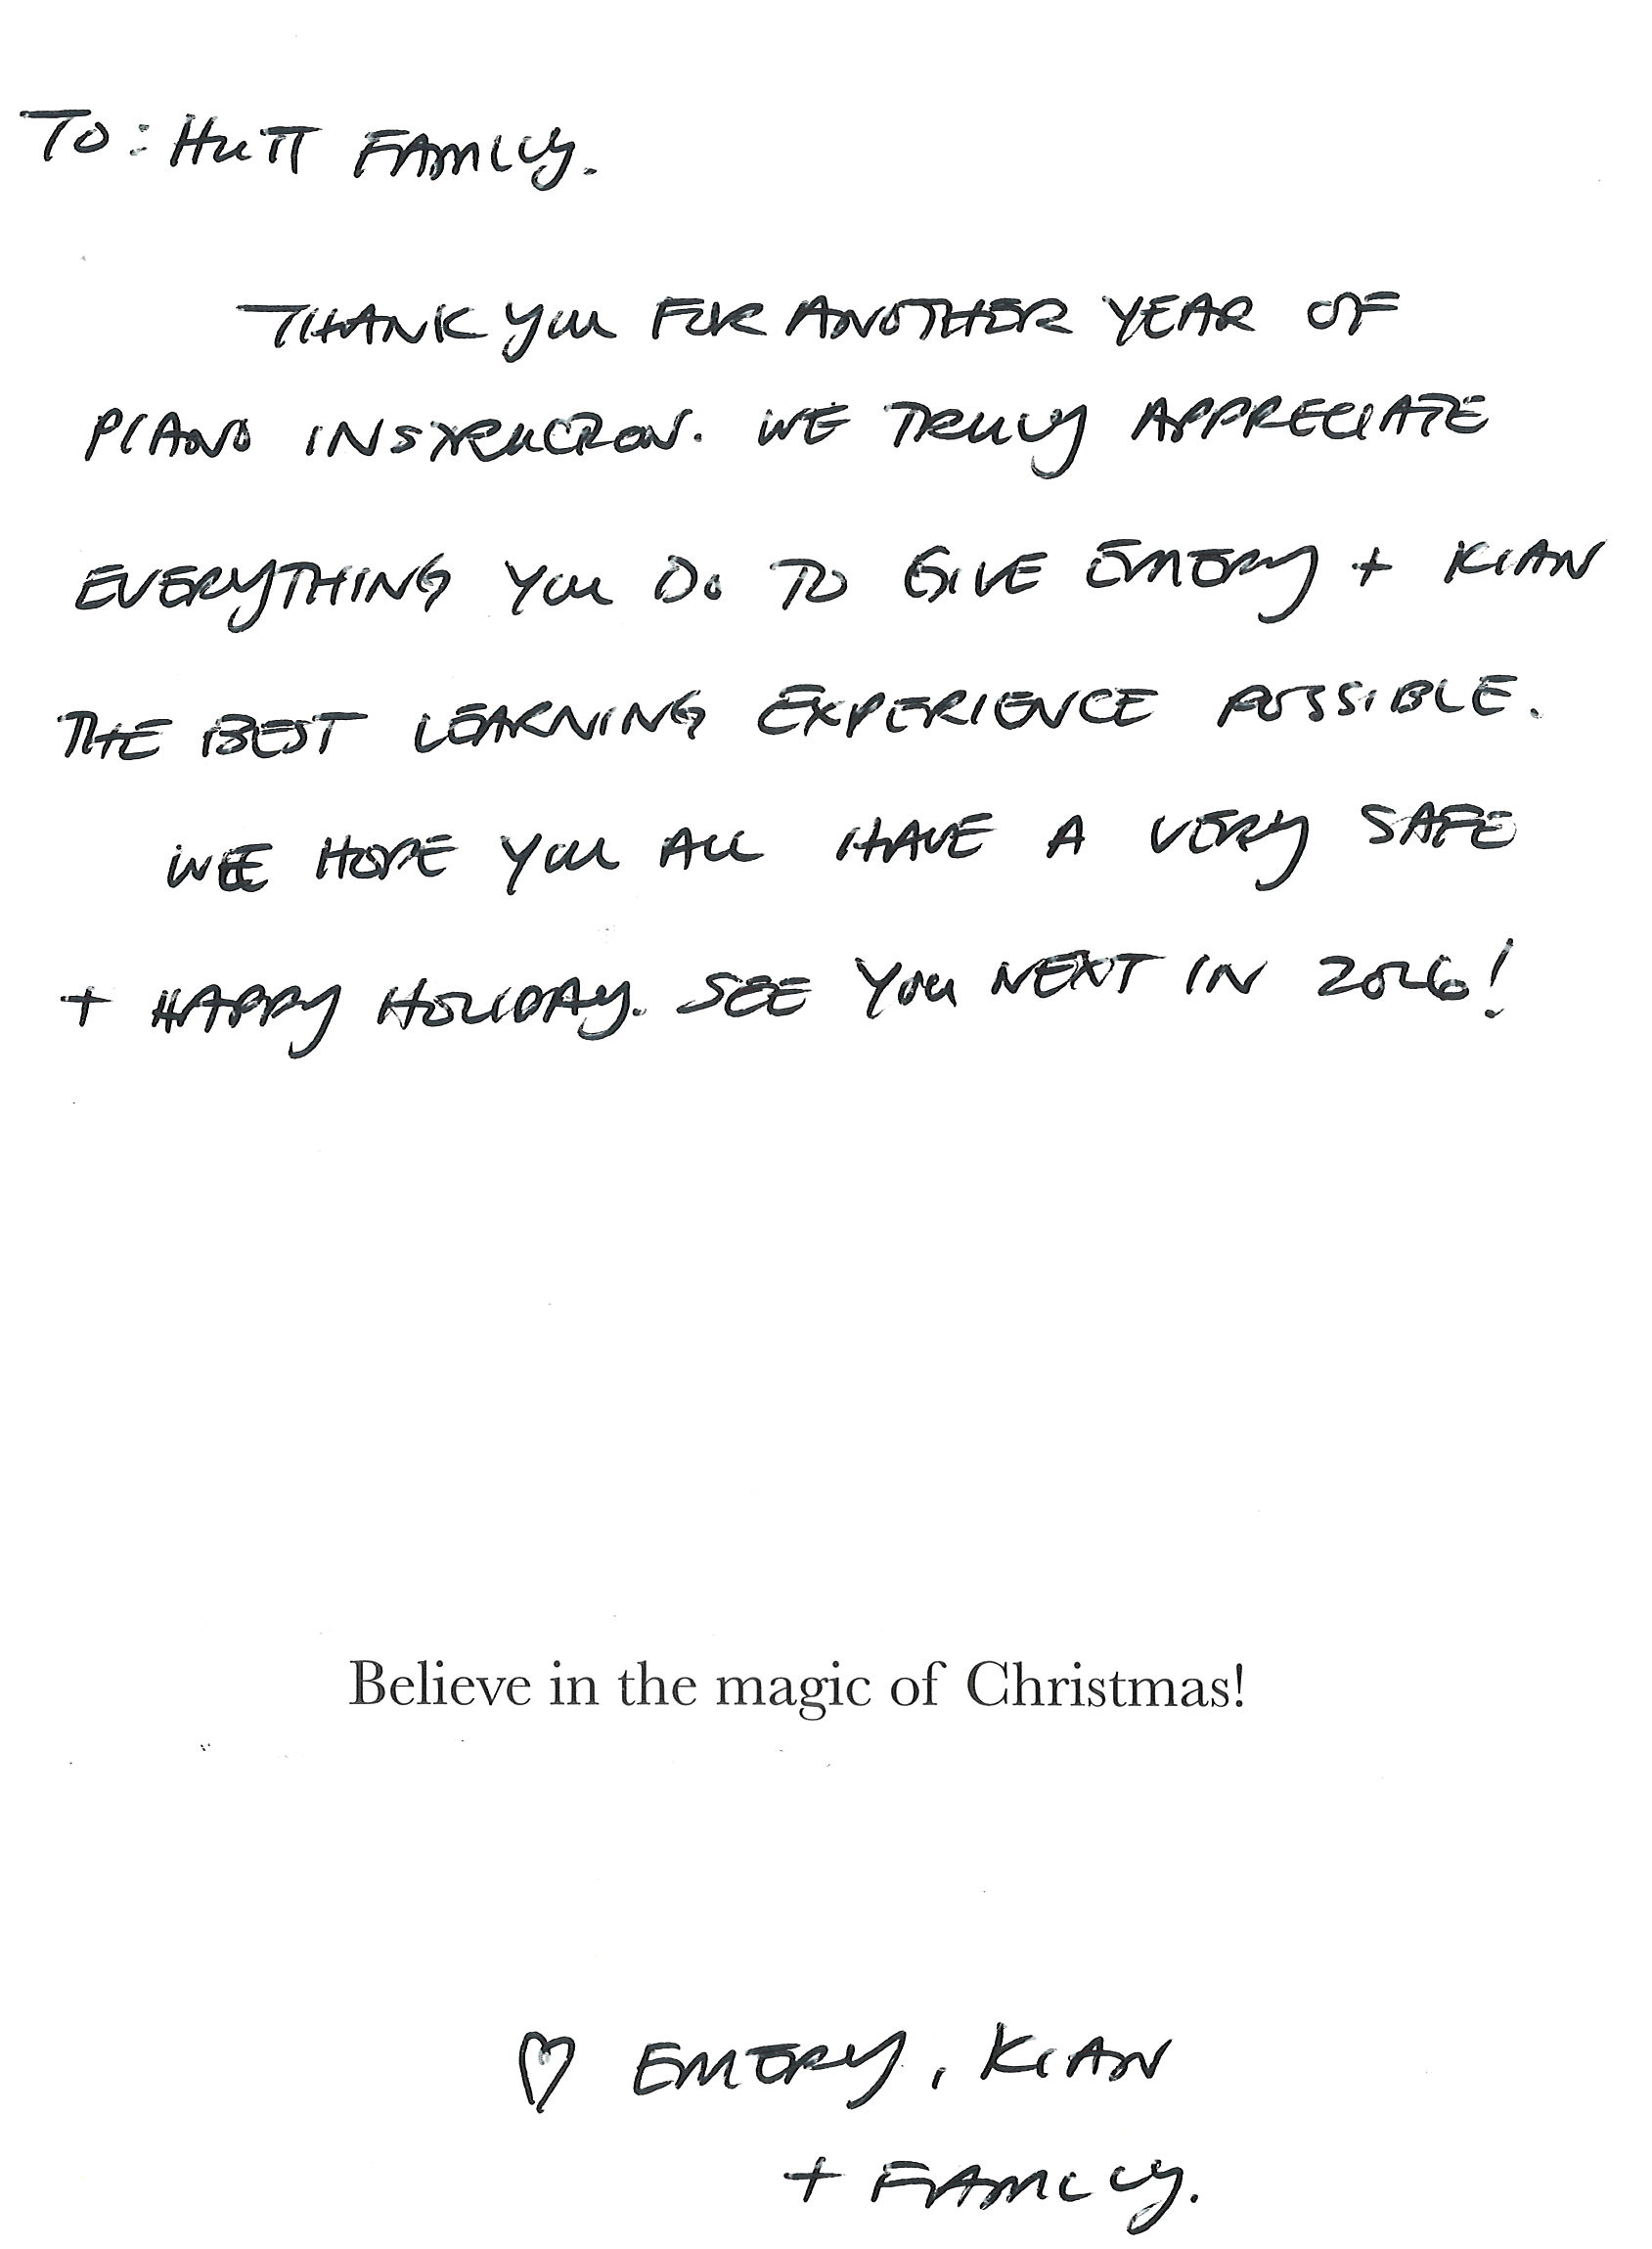 TO: HUTT FAMILY.
THANK YOU FOR ANOTHER YEAR OF
PIANO INSTRUCTION. WE TRULY APPRECIATE
EVERYTHING YOU DO TO GIVE EMERY + KIAN
THE BEST LEARNING EXPERIENCE POSSIBLE.
WE HOPE YOU ALL HAVE A VERY SAFE
+ HAPPY HOLIDAY. SEE YOU NEXT IN 2026!
Believe in the magic of Christmas!
♡ EMERY, KIAN
+ FAMILY.